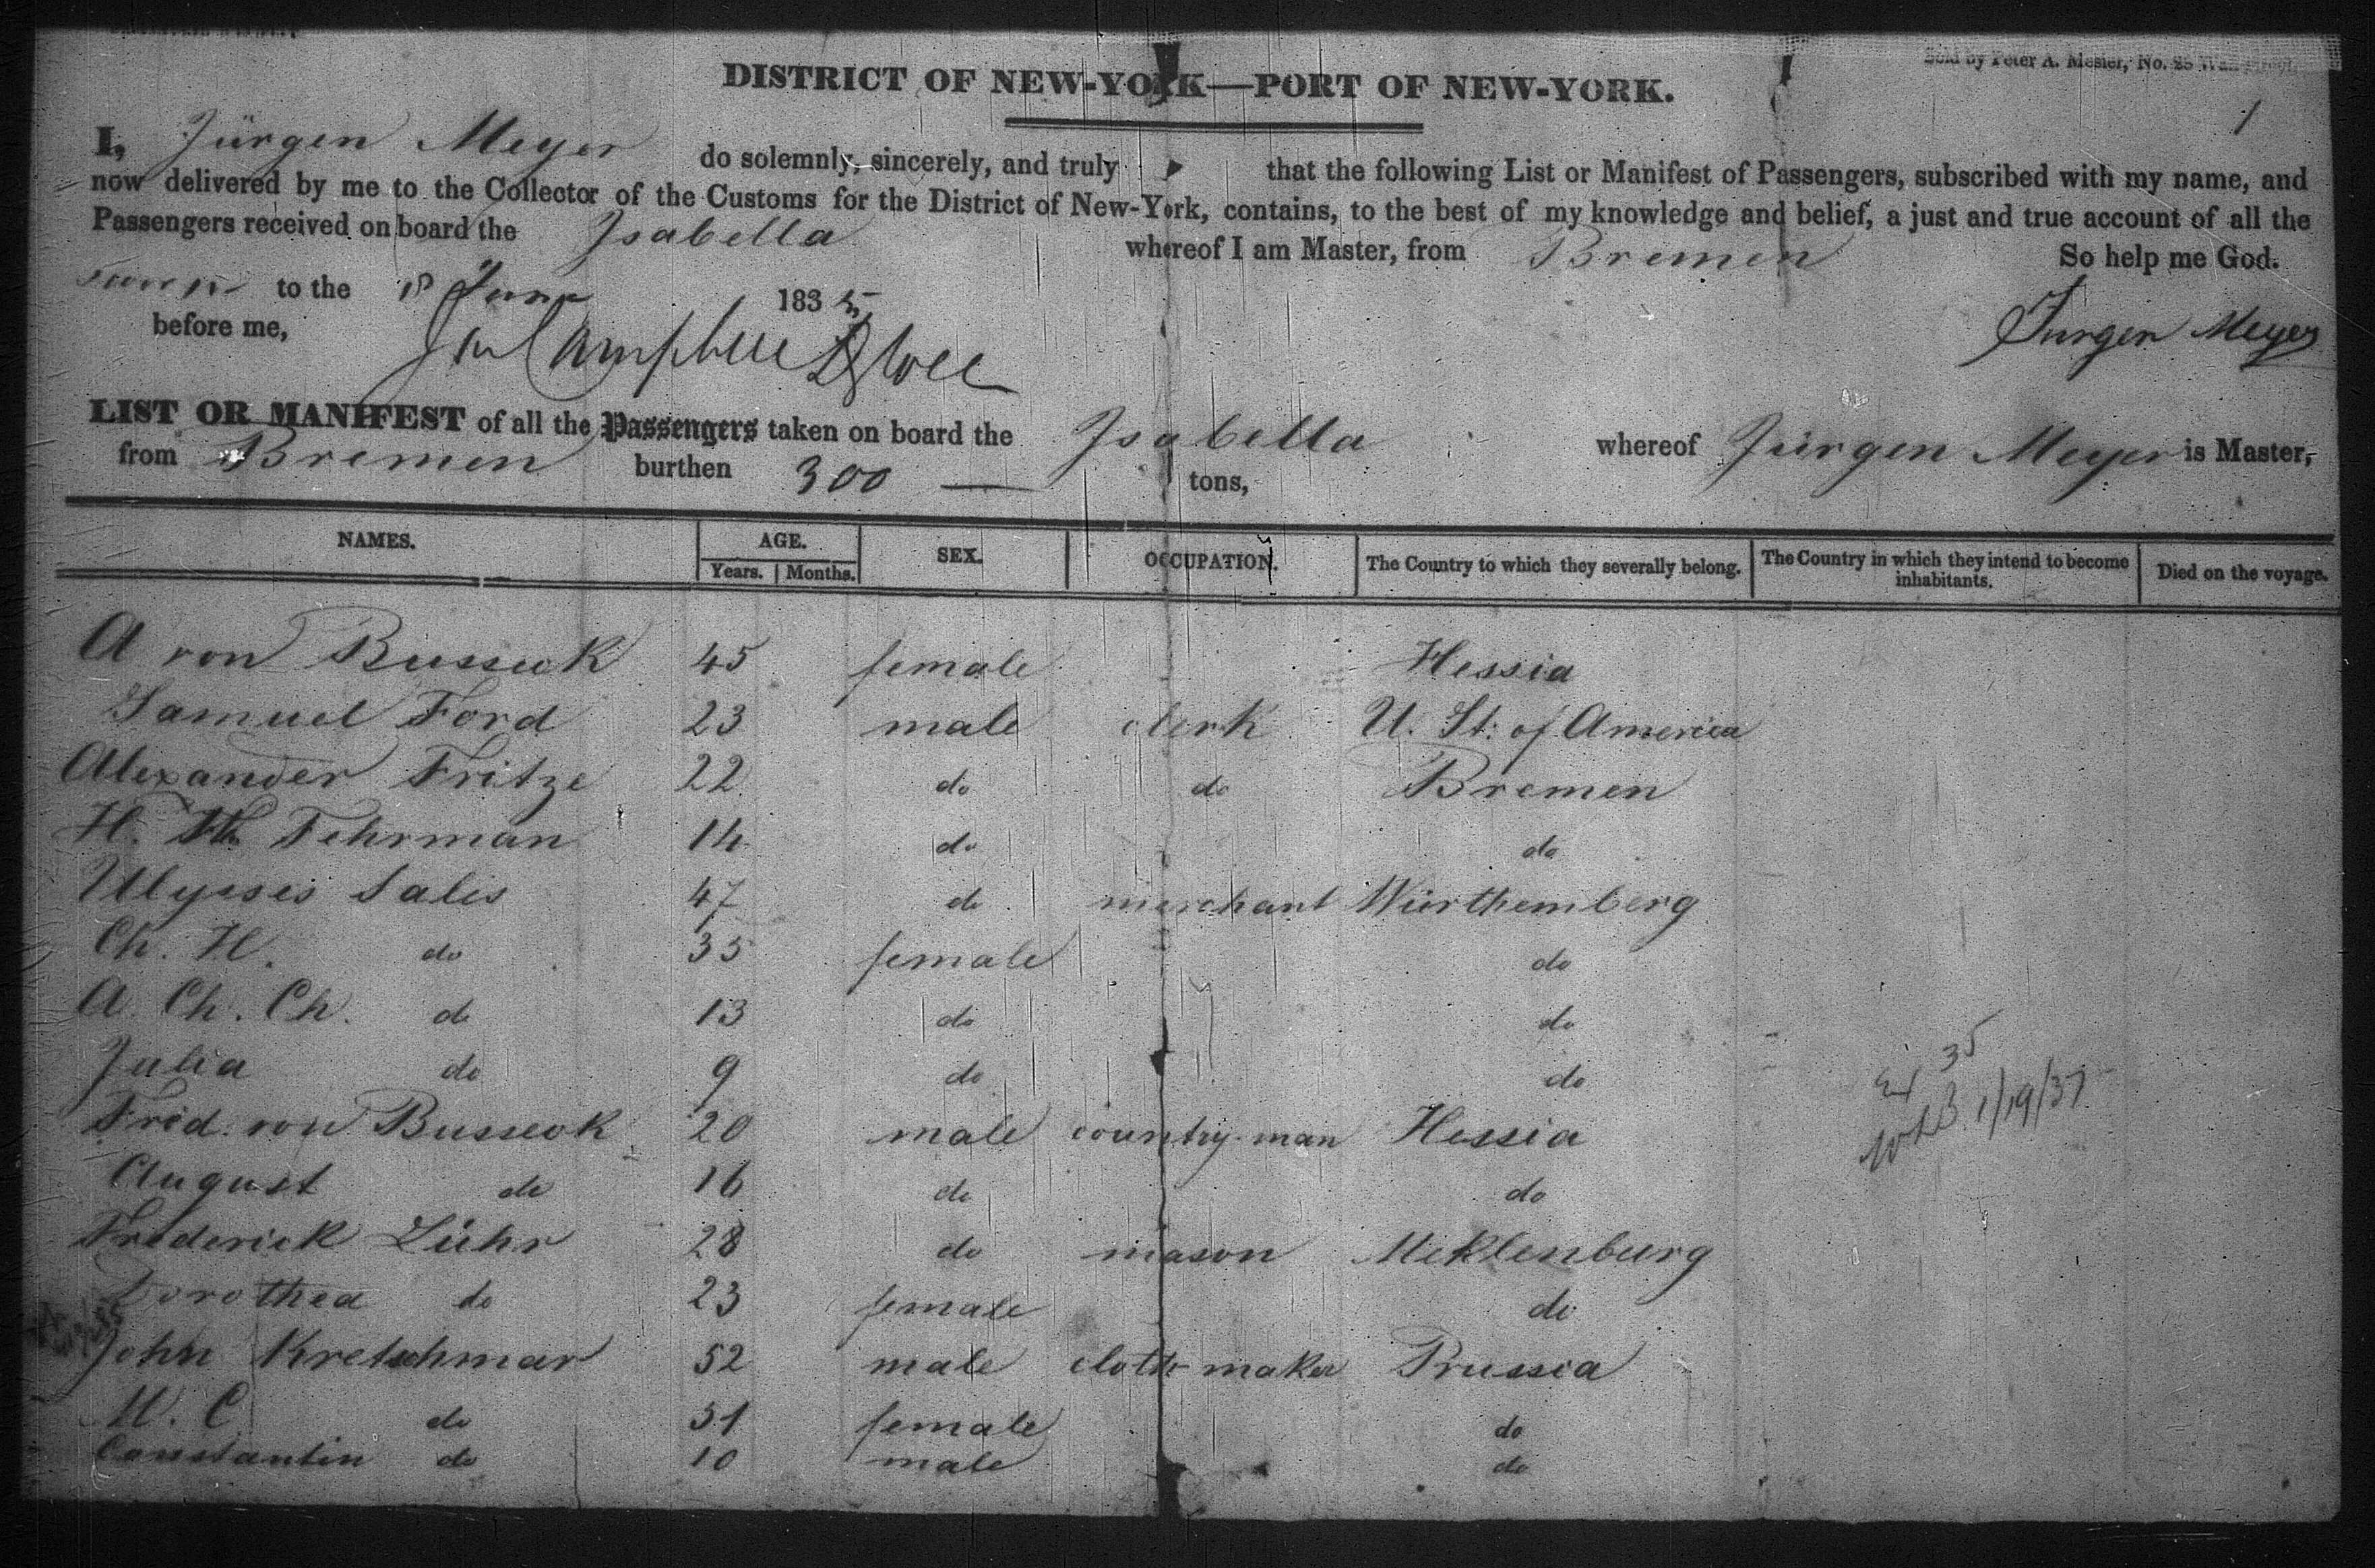 Sold by Peter A. Mesier, No. 28 Wall
DISTRICT OF NEW-YORK—PORT OF NEW-YORK.
1
I, Jürgen Meyer do solemnly, sincerely, and truly that the following List or Manifest of Passengers, subscribed with my name, and
now delivered by me to the Collector of the Customs for the District of New-York, contains, to the best of my knowledge and belief, a just and true account of all the
Passengers received on board the Isabella whereof I am Master, from Bremen So help me God.
to the 18 June 1835
before me, Jurgen Meyer
LIST OR MANIFEST of all the Passengers taken on board the Isabella whereof Jürgen Meyer is Master,
from Bremen burthen 300 — tons,
NAMES. AGE. SEX. OCCUPATION. The Country to which they severally belong. The Country in which they intend to become inhabitants. Died on the voyage.
Years. Months.
A von Busseck 45 female Hessia
Samuel Ford 23 male clerk U. St: of America
Alexander Fritze 22 do do Bremen
H. Fehrman 14 do do
Ulysses Salis 47 do merchant Würthemberg
Ch. H. do 35 female do
A. Ch. Ch. do 13 do do
Julia do 9 do do
Fred: von Busseck 20 male country-man Hessia
August do 16 do do
Frederick Lühr 28 do mason Meklenburg
Dorothea do 23 female do
John Kretschmar 52 male cloth-maker Prussia
M. C do 51 female do
Constantin do 10 male do
35
1/19/37